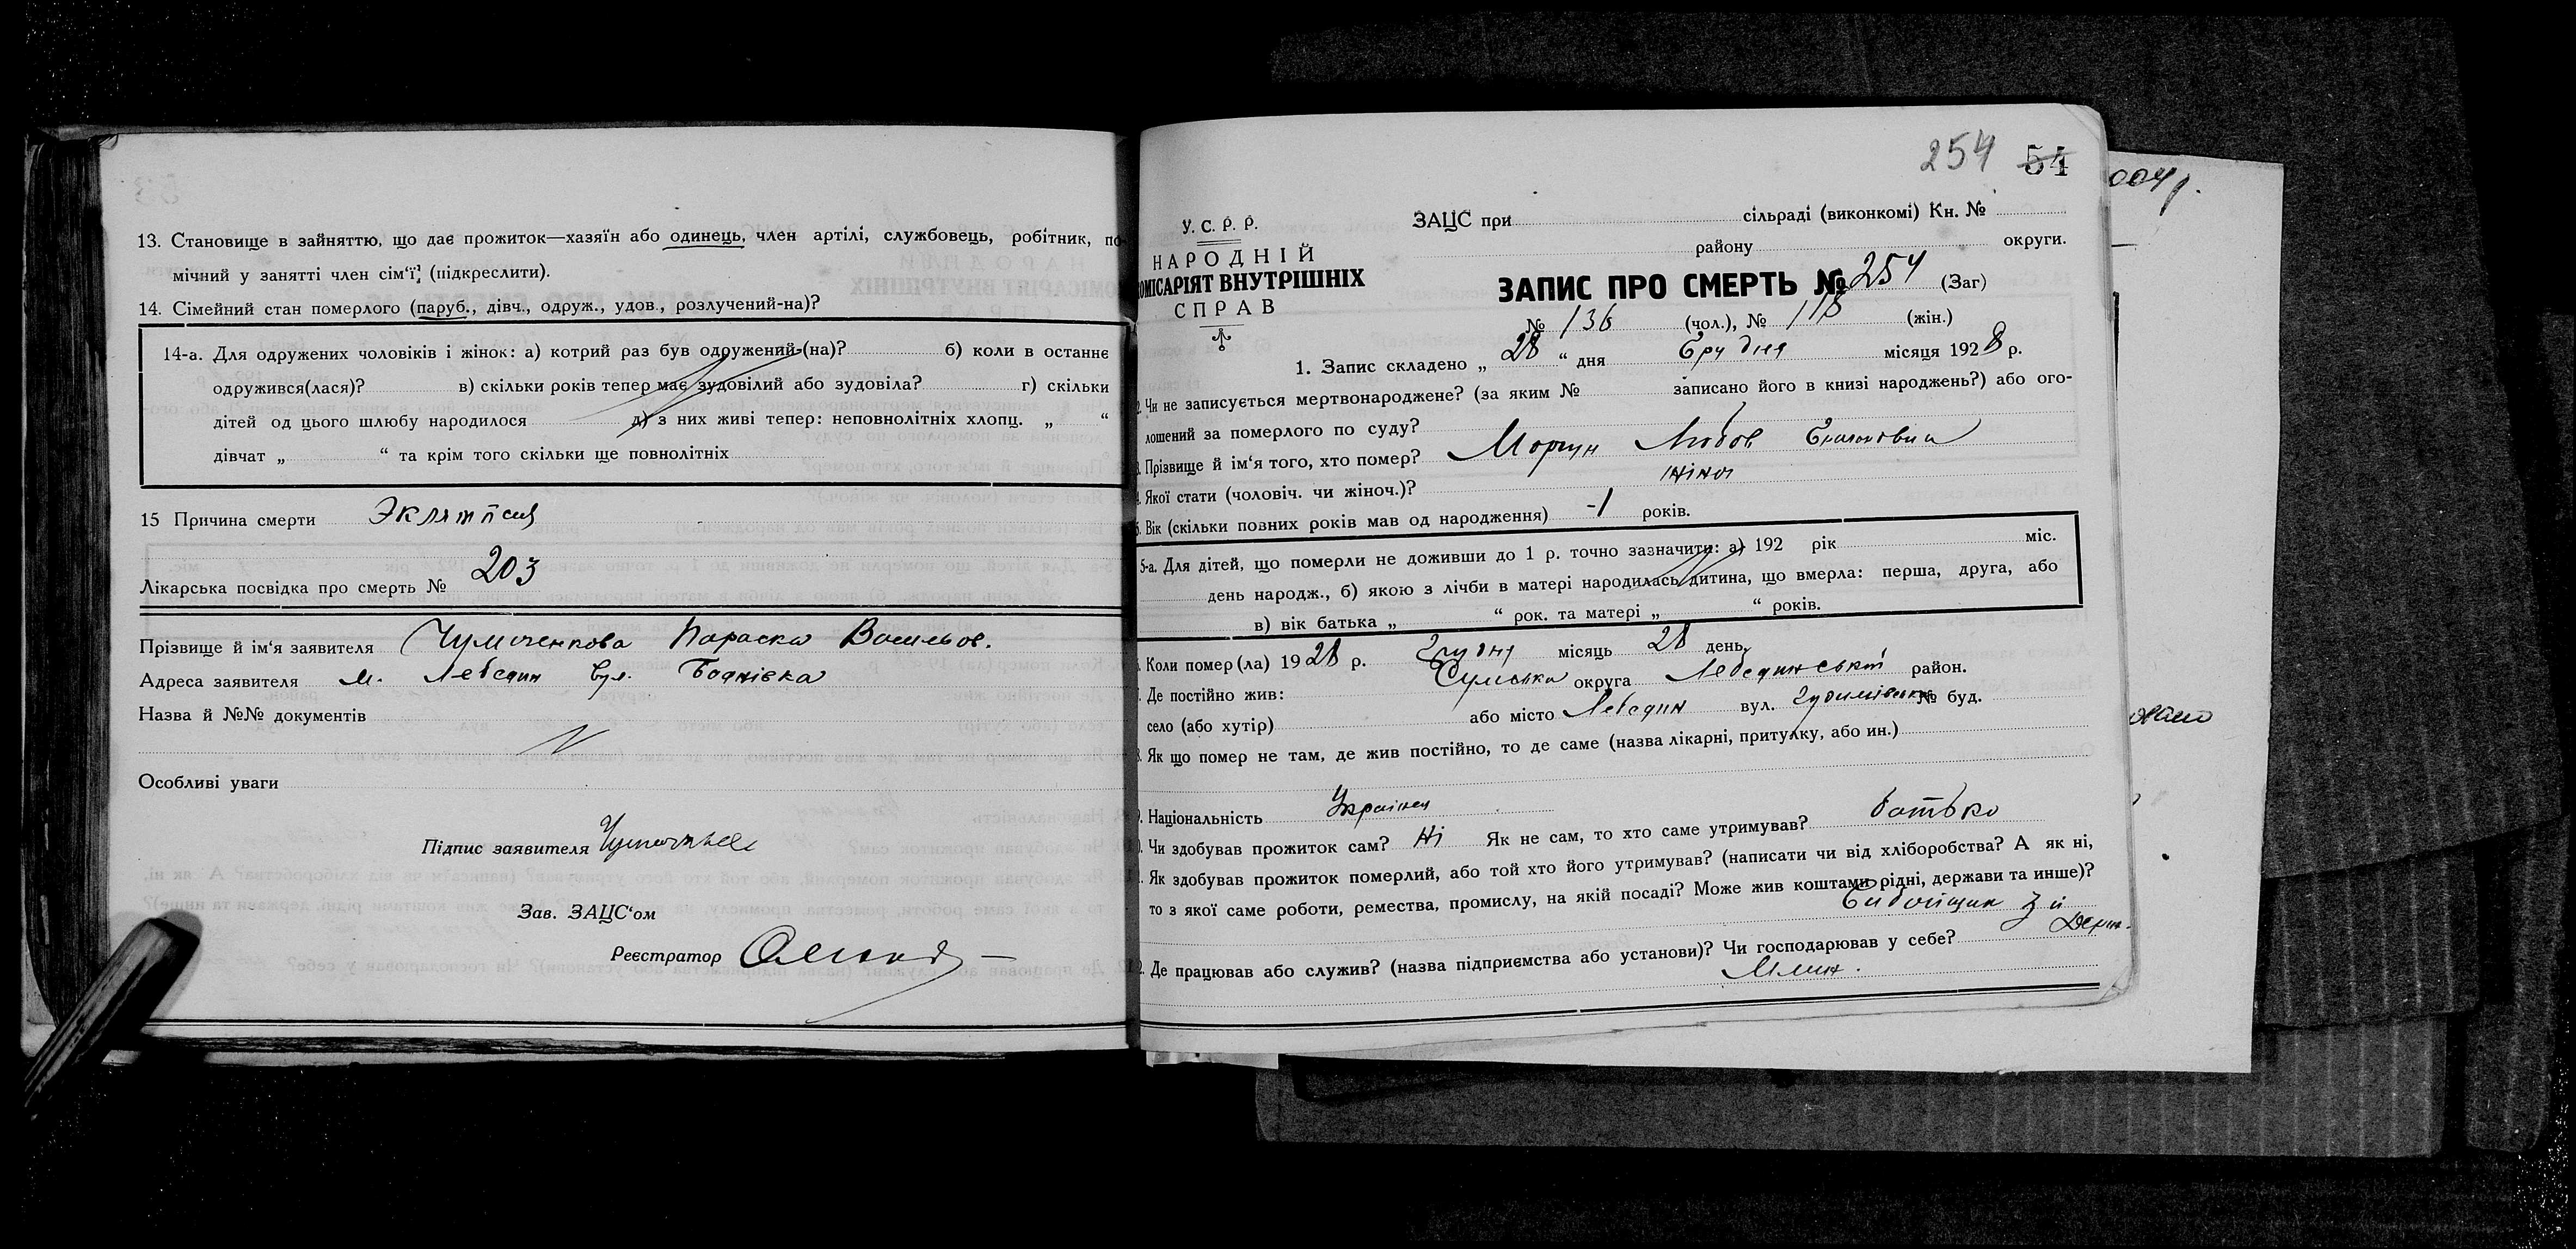 13. Становище в зайняттю, що дає прожиток—хазяїн або одинець, член артілі, службовець, робітник, по-
мічний у занятті член сім'ї, (підкреслити).
14. Сімейний стан померлого (паруб., дівч., одруж., удов., розлучений-на)?
14-а. Для одружених чоловіків і жінок: а) котрий раз був одружений (на)? б) коли в останнє
одружився(лася)? в) скільки років тепер має зудовілий або зудовіла? г) скільки
дітей од цього шлюбу народилося д) з них живі тепер: неповнолітніх хлопц. „ “
дівчат „ “ та крім того скільки ще повнолітніх
15 Причина смерти Эклямпсия
Лікарська посвідка про смерть № 203
Прізвище й ім'я заявителя Параска Васильов.
Адреса заявителя м. Лебедин Вул.
Назва й №№ документів
Особливі уваги
Підпис заявителя
Зав. ЗАЦС'ом
Реєстратор
254 54
У. С. Р. Р.
НАРОДНІЙ
КОМІСАРІЯТ ВНУТРІШНІХ
СПРАВ
ЗАЦС при сільраді (виконкомі) Кн. №
району округи.
ЗАПИС ПРО СМЕРТЬ № 254 (Заг)
№ 136 (чол.), № 118 (жін.)
1. Запис складено „ 28 “ дня Грудня місяця 1928 р.
2. Чи не записується мертвонароджене? (за яким № записано його в книзі народжень?) або ого-
лошений за померлого по суду?
3. Прізвище й ім'я того, хто помер? Моргун Любов
4. Якої стати (чоловіч. чи жіноч.)? жіноч
5. Вік (скільки повних років мав од народження) -1 років.
5-а. Для дітей, що померли не доживши до 1 р. точно зазначити: а) 192 рік міс.
день народж., б) якою з лічби в матері народилась дитина, що вмерла: перша, друга, або
в) вік батька „ “ рок. та матері „ “ років.
6. Коли помер(ла) 1928 р. Грудня місяць 28 день.
7. Де постійно жив: Сумська округа Лебединський район.
село (або хутір) або місто Лебедин вул. № буд.
8. Як що помер не там, де жив постійно, то де саме (назва лікарні, притулку, або ин.)
9. Національність Українец
10. Чи здобував прожиток сам? Ні Як не сам, то хто саме утримував? батько
11. Як здобував прожиток померлий, або той хто його утримував? (написати чи від хліборобства? А як ні,
то з якої саме роботи, ремества, промислу, на якій посаді? Може жив коштами рідні, держави та инше)?
Держ.
12. Де працював або служив? (назва підприємства або установи)? Чи господарював у себе?
Млин.